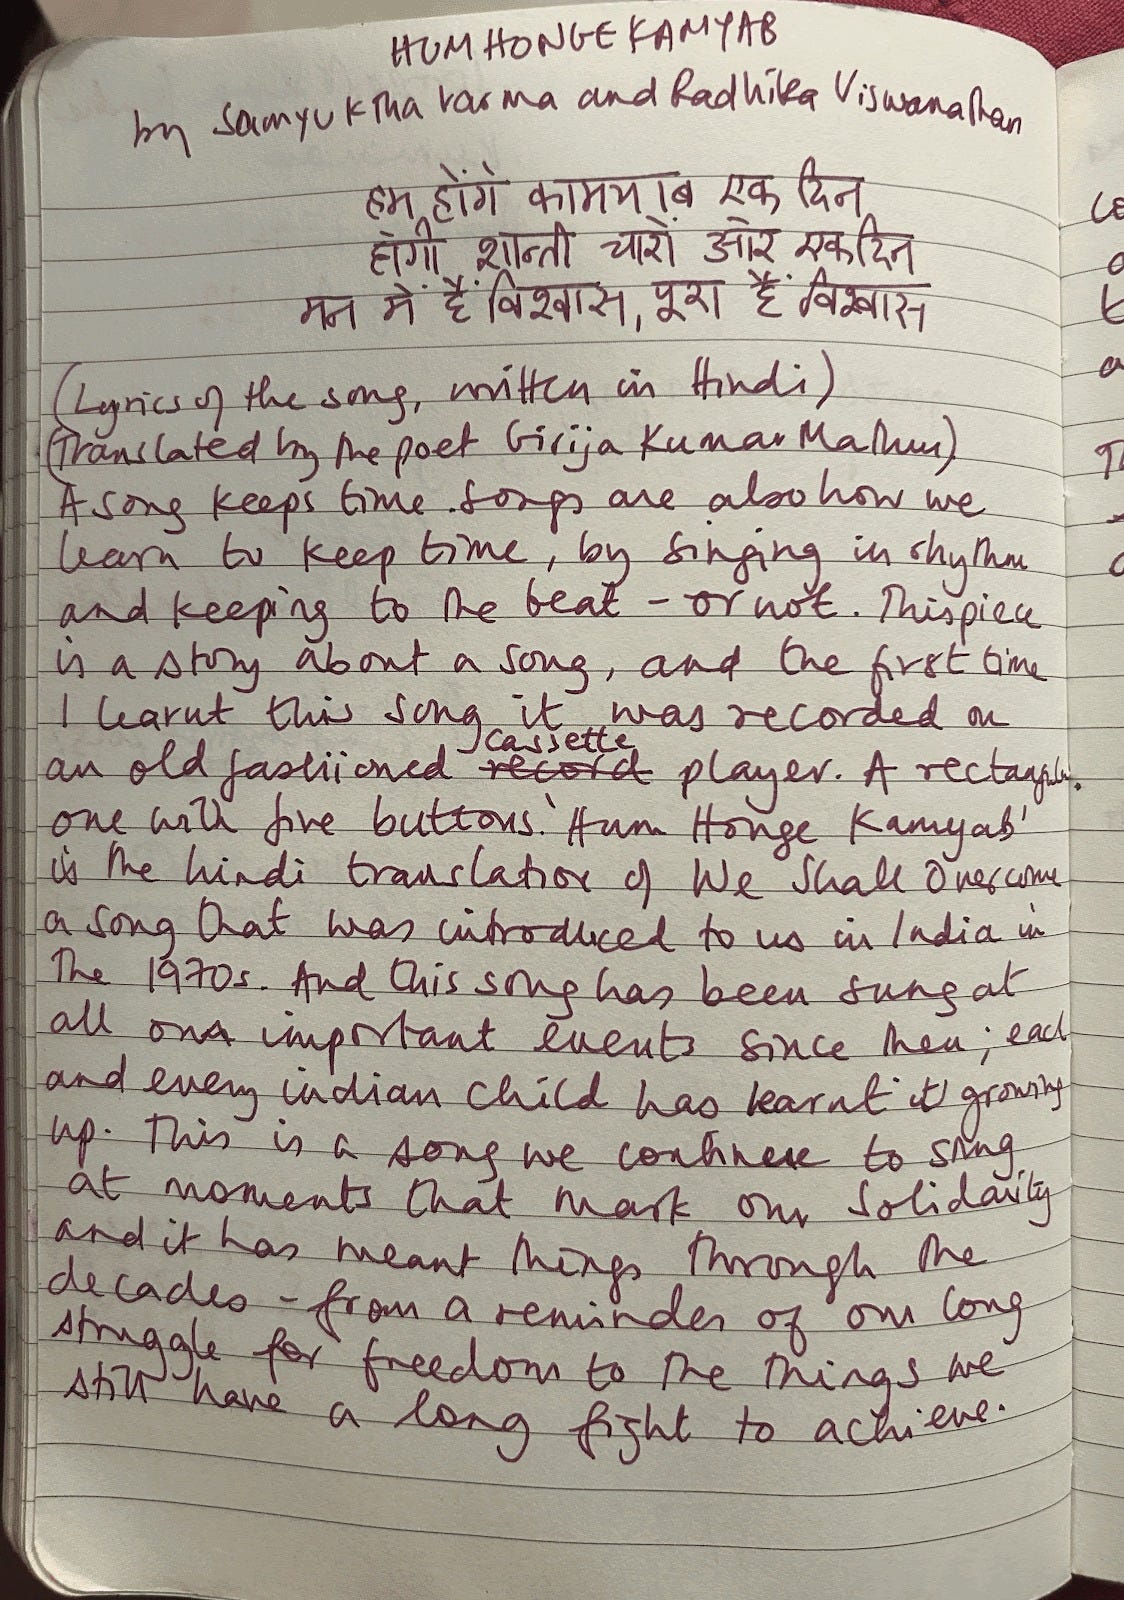 HUM HONGE KAMYAB
by Samyuktha Varma and Radhika Viswanathan
हम होंगे कामयाब एक दिन
होगी शान्ती चारों ओर एक दिन
मन में हैं विश्वास, पूरा हैं विश्वास
(Lyrics of the song, written in Hindi)
(Translated by the poet Girija Kumar Mathur)
A song keeps time. Songs are also how we
learn to keep time, by singing in rhythm
and keeping to the beat – or not. This piece
is a story about a song, and the first time
I learnt this song it was recorded on
cassette
an old fashioned record player. A rectangular
one with five buttons. 'Hum Honge Kamyab'
is the hindi translation of We Shall Overcome
a song that was introduced to us in India in
the 1970s. And this song has been sung at
all our important events since then; each
and every indian child has learnt it growing
up. This is a song we continue to sing
at moments that mark our solidarity
and it has meant things through the
decades – from a reminder of our long
struggle for freedom to the things we
still have a long fight to achieve.